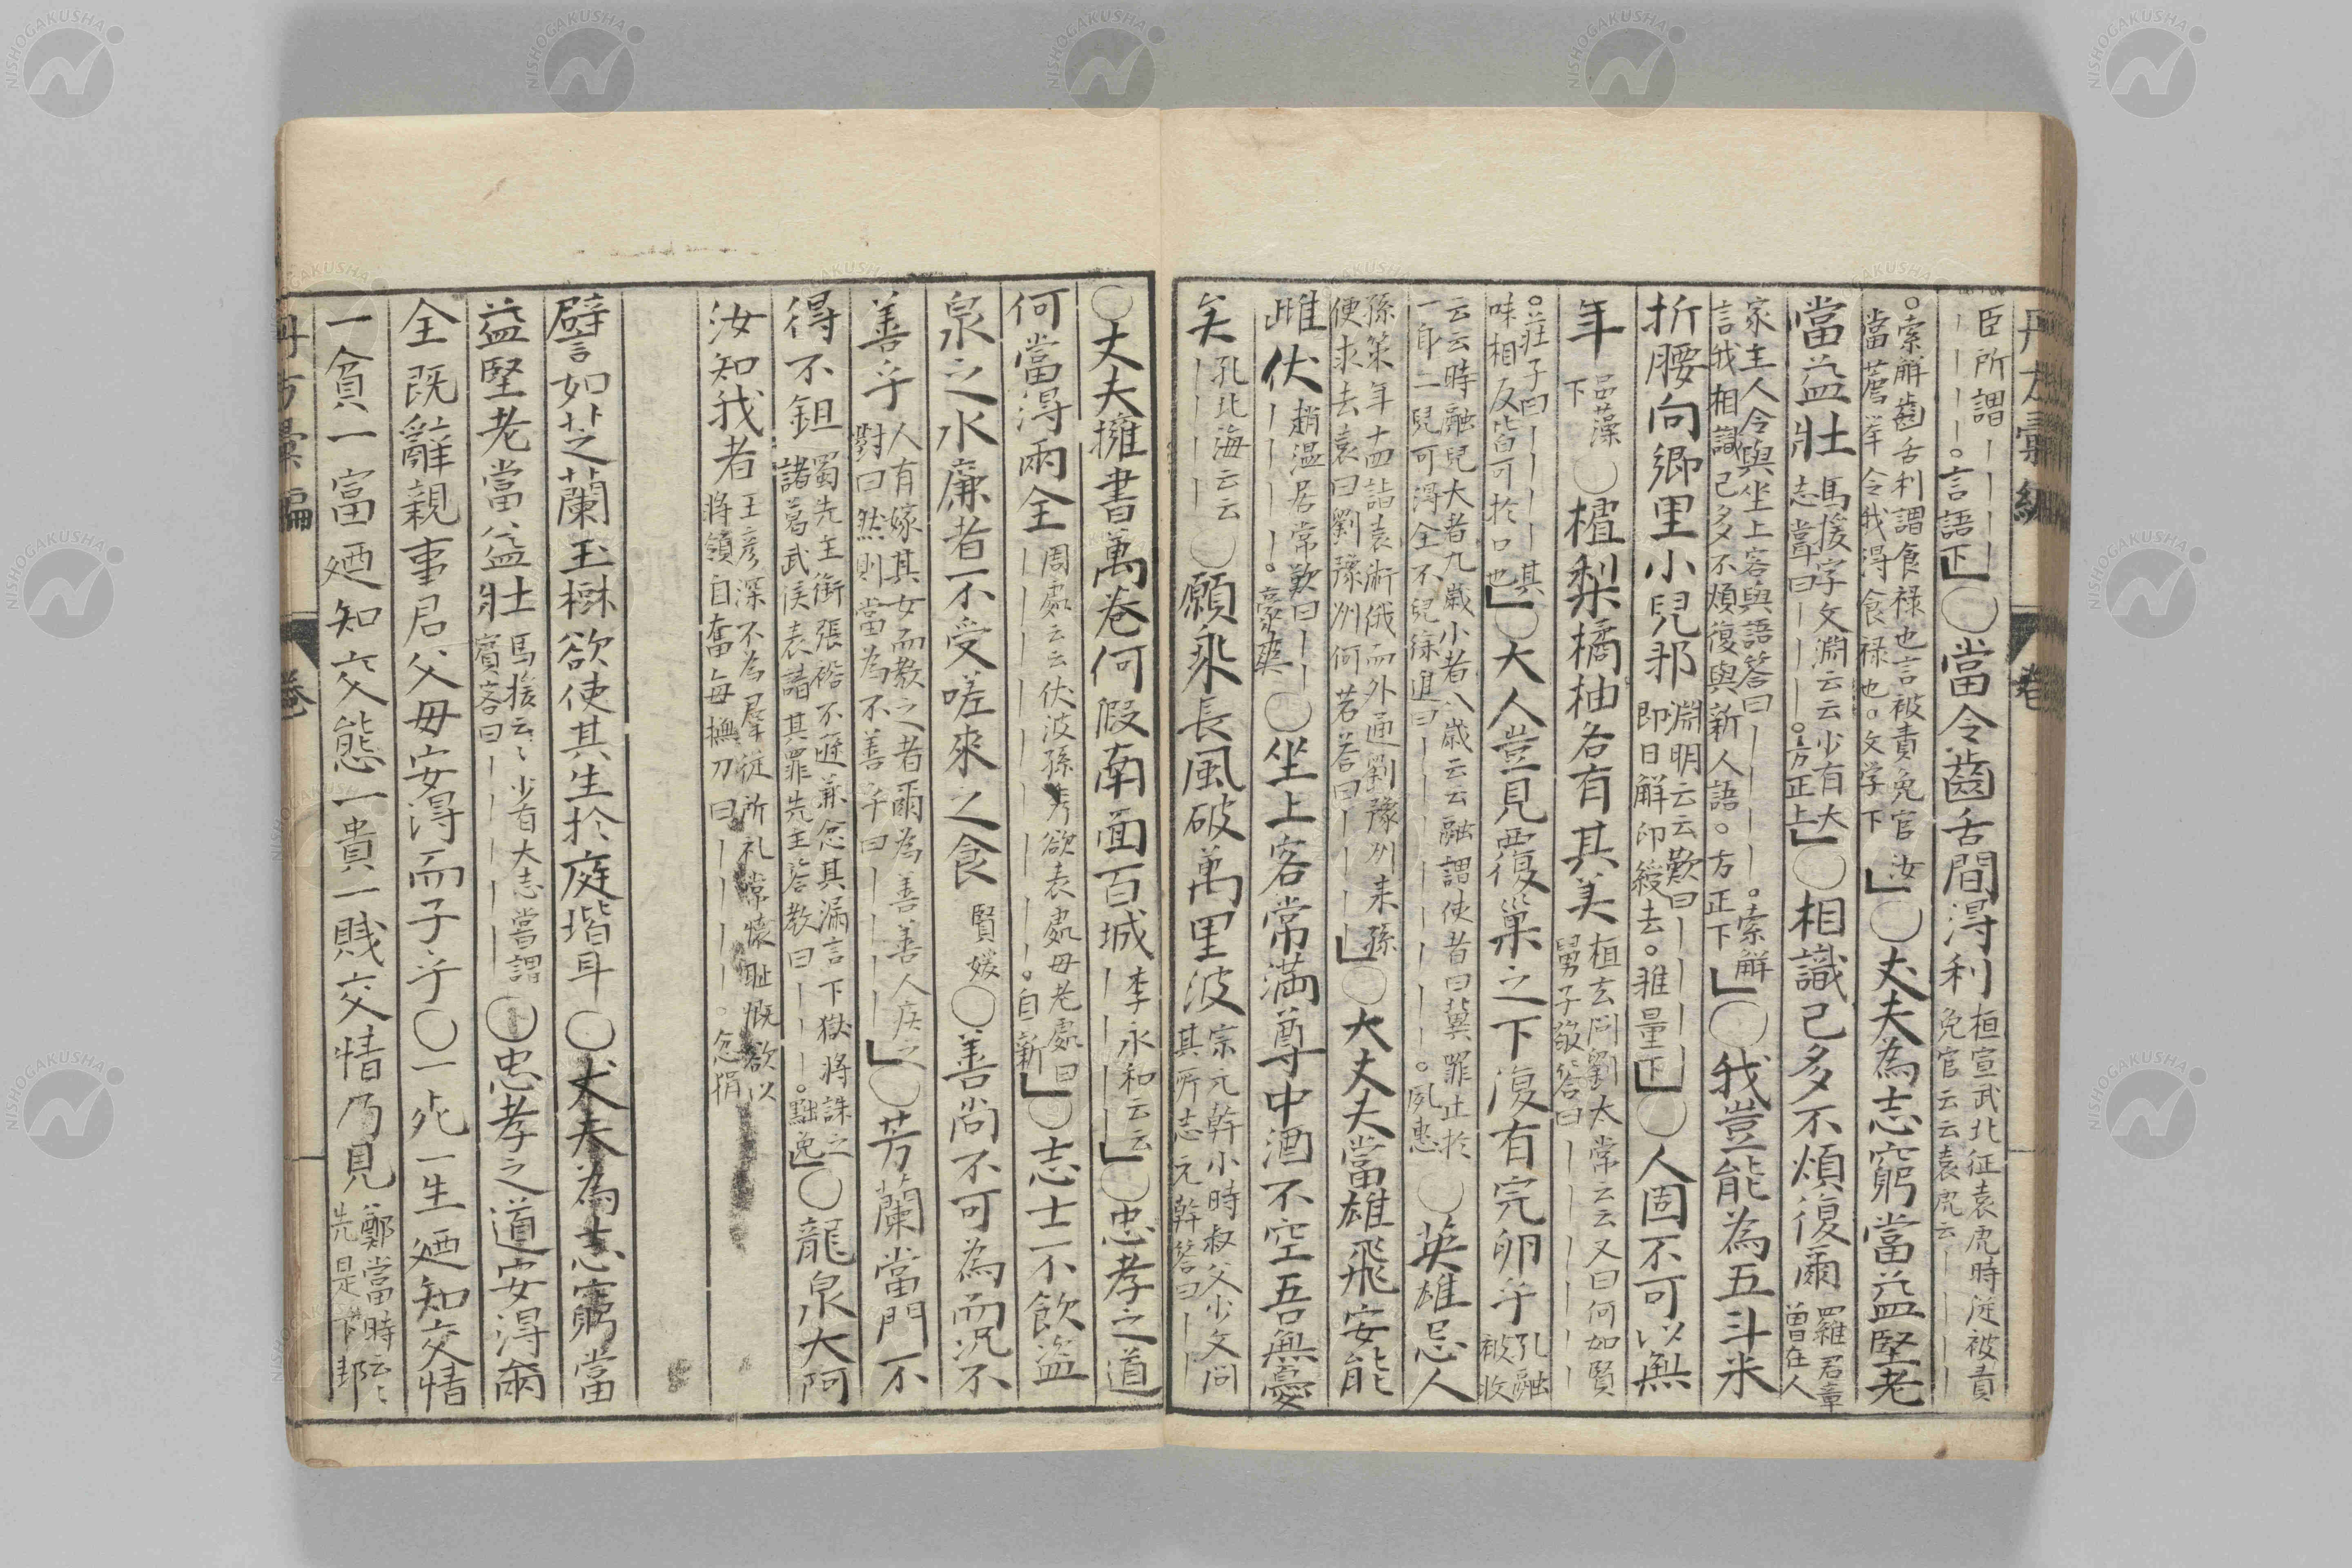 丹方彙編　卷
臣所謂｜｜｜
｜｜｜｜。言語下」○當令齒舌間得利桓宣武北征袁虎時從被責
免官云云袁虎云｜｜｜
○索解齒舌利謂食祿也言被責免官汝
當薦擧令我得食祿也。文学下」○丈夫為志窮當益堅老
當益壯馬援字文淵云云少有大
志嘗曰｜｜｜。方正上」○相識已多不煩復爾羅君章
曽在人
家主人令與坐上客與語答曰｜｜｜｜｜。索解
言我相識已多不煩復與新人語。方正下」○我豈能為五斗米
折腰向鄉里小兒邪淵明云云歎曰｜｜｜｜
即日解印綬去。雅量下」○人固不可以無
年品藻
下○樝梨橘柚各有其美桓玄問劉太常云云又曰何如賢
舅子敬答曰｜｜｜｜｜
○莊子曰｜｜｜｜其
味相反皆可於口也」○大人豈見覆巢之下復有完卵乎孔融
被收
云云時融兒大者九歲小者八歲云云融謂使者曰冀罪止於
一身二兒可得全不兒徐進曰｜｜｜｜｜｜。夙惠○英雄忌人
孫策年十四詣袁術俄而外通劉豫州来孫
便求去袁曰劉豫州何若答曰｜｜｜」○大丈夫當雄飛安能
雌伏趙温居常歎曰｜｜
｜｜｜｜｜。豪爽○坐上客常滿尊中酒不空吾無憂
矣孔北海云云
｜｜｜｜○願乘長風破萬里波宗元幹小時叔父少文問
其所志元幹答曰｜｜
○丈夫擁書萬卷何假南面百城李永和云云
｜｜｜｜｜」○忠孝之道
何當得兩全周處云云伏波孫秀欲表處母老處曰
｜｜｜｜｜｜｜。自新」○志士不飲盜
泉之水廉者不受嗟來之食賢媛○善尚不可為而况不
善乎人有嫁其女而教之者爾為善善人疾之
對曰然則當為不善乎曰｜｜｜｜｜」○芳蘭當門不
得不鉏蜀先主銜張裕不遜兼忿其漏言下獄將誅之
諸葛武侯表請其罪先主答教曰｜｜｜｜。黜免」○龍泉大阿
汝知我者王彦深不為羣從所礼常懐耻慨欲以
將領自奮毎撫刀曰｜｜｜｜｜。忿狷
譬如芝蘭玉樹欲使其生於庭堦耳○丈夫為志窮當
益堅老當益壯馬援云〻少有大志嘗謂
賓客曰｜｜｜｜｜○忠孝之道安得兩
全既辭親事君父母安得而子乎○一死一生廼知交情
一貧一富廼知交態一貴一賤交情乃見鄭當時云〻
先是下邽
丹方彙編　卷